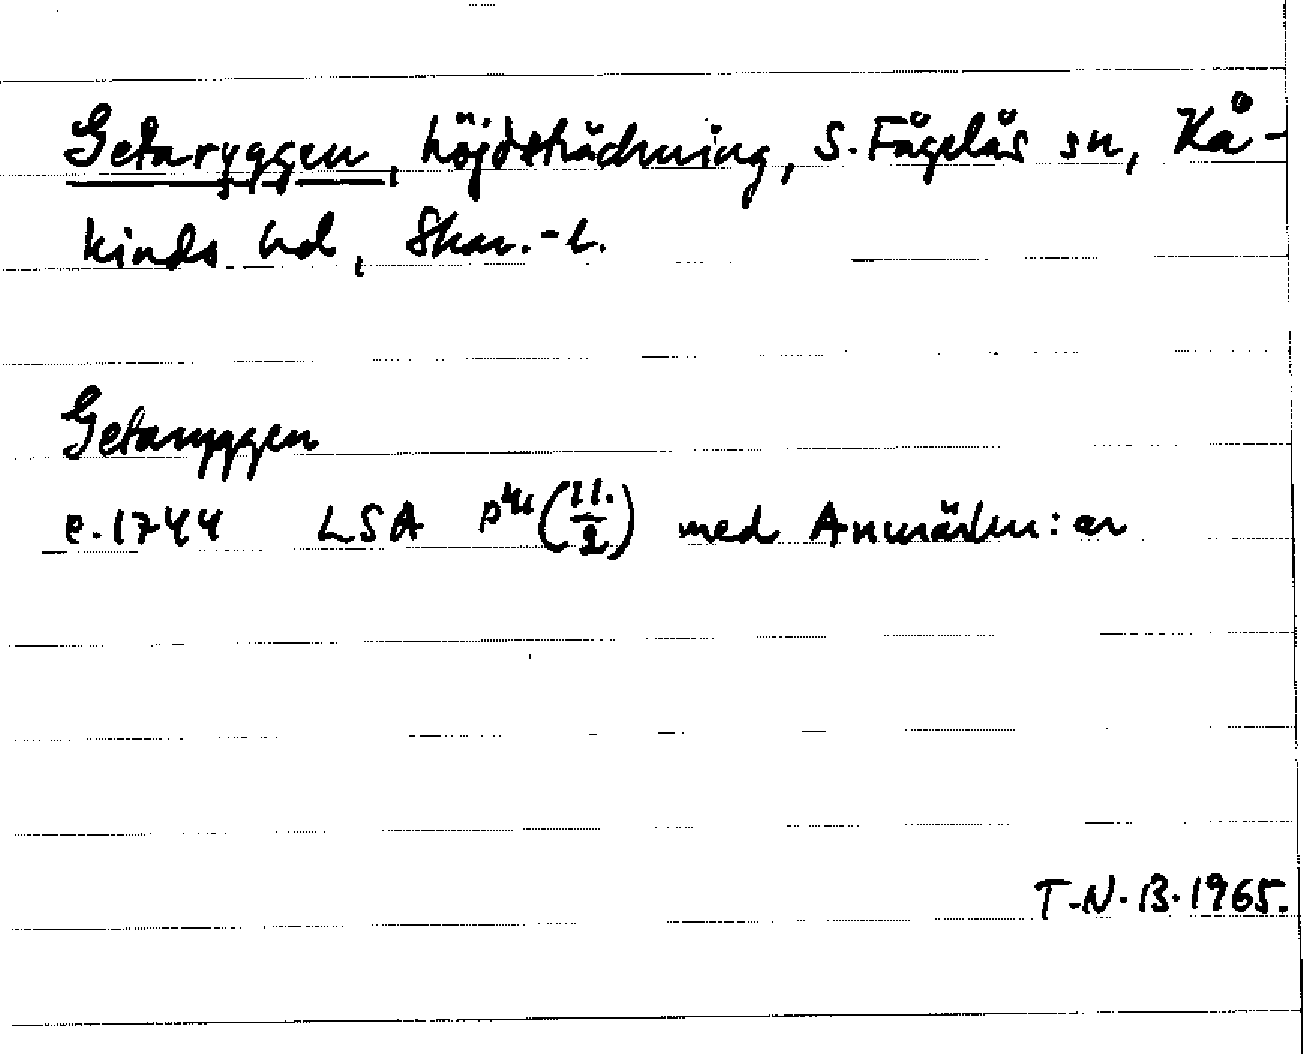 Getaryggen, höjdsträckning, S. Fågelås sn, Kå-
kinds hd, Skar.-l.
Getaryggen
e. 1744 LSA P44 (11./2) med Anmärkn:ar
T-N.B. 1965.